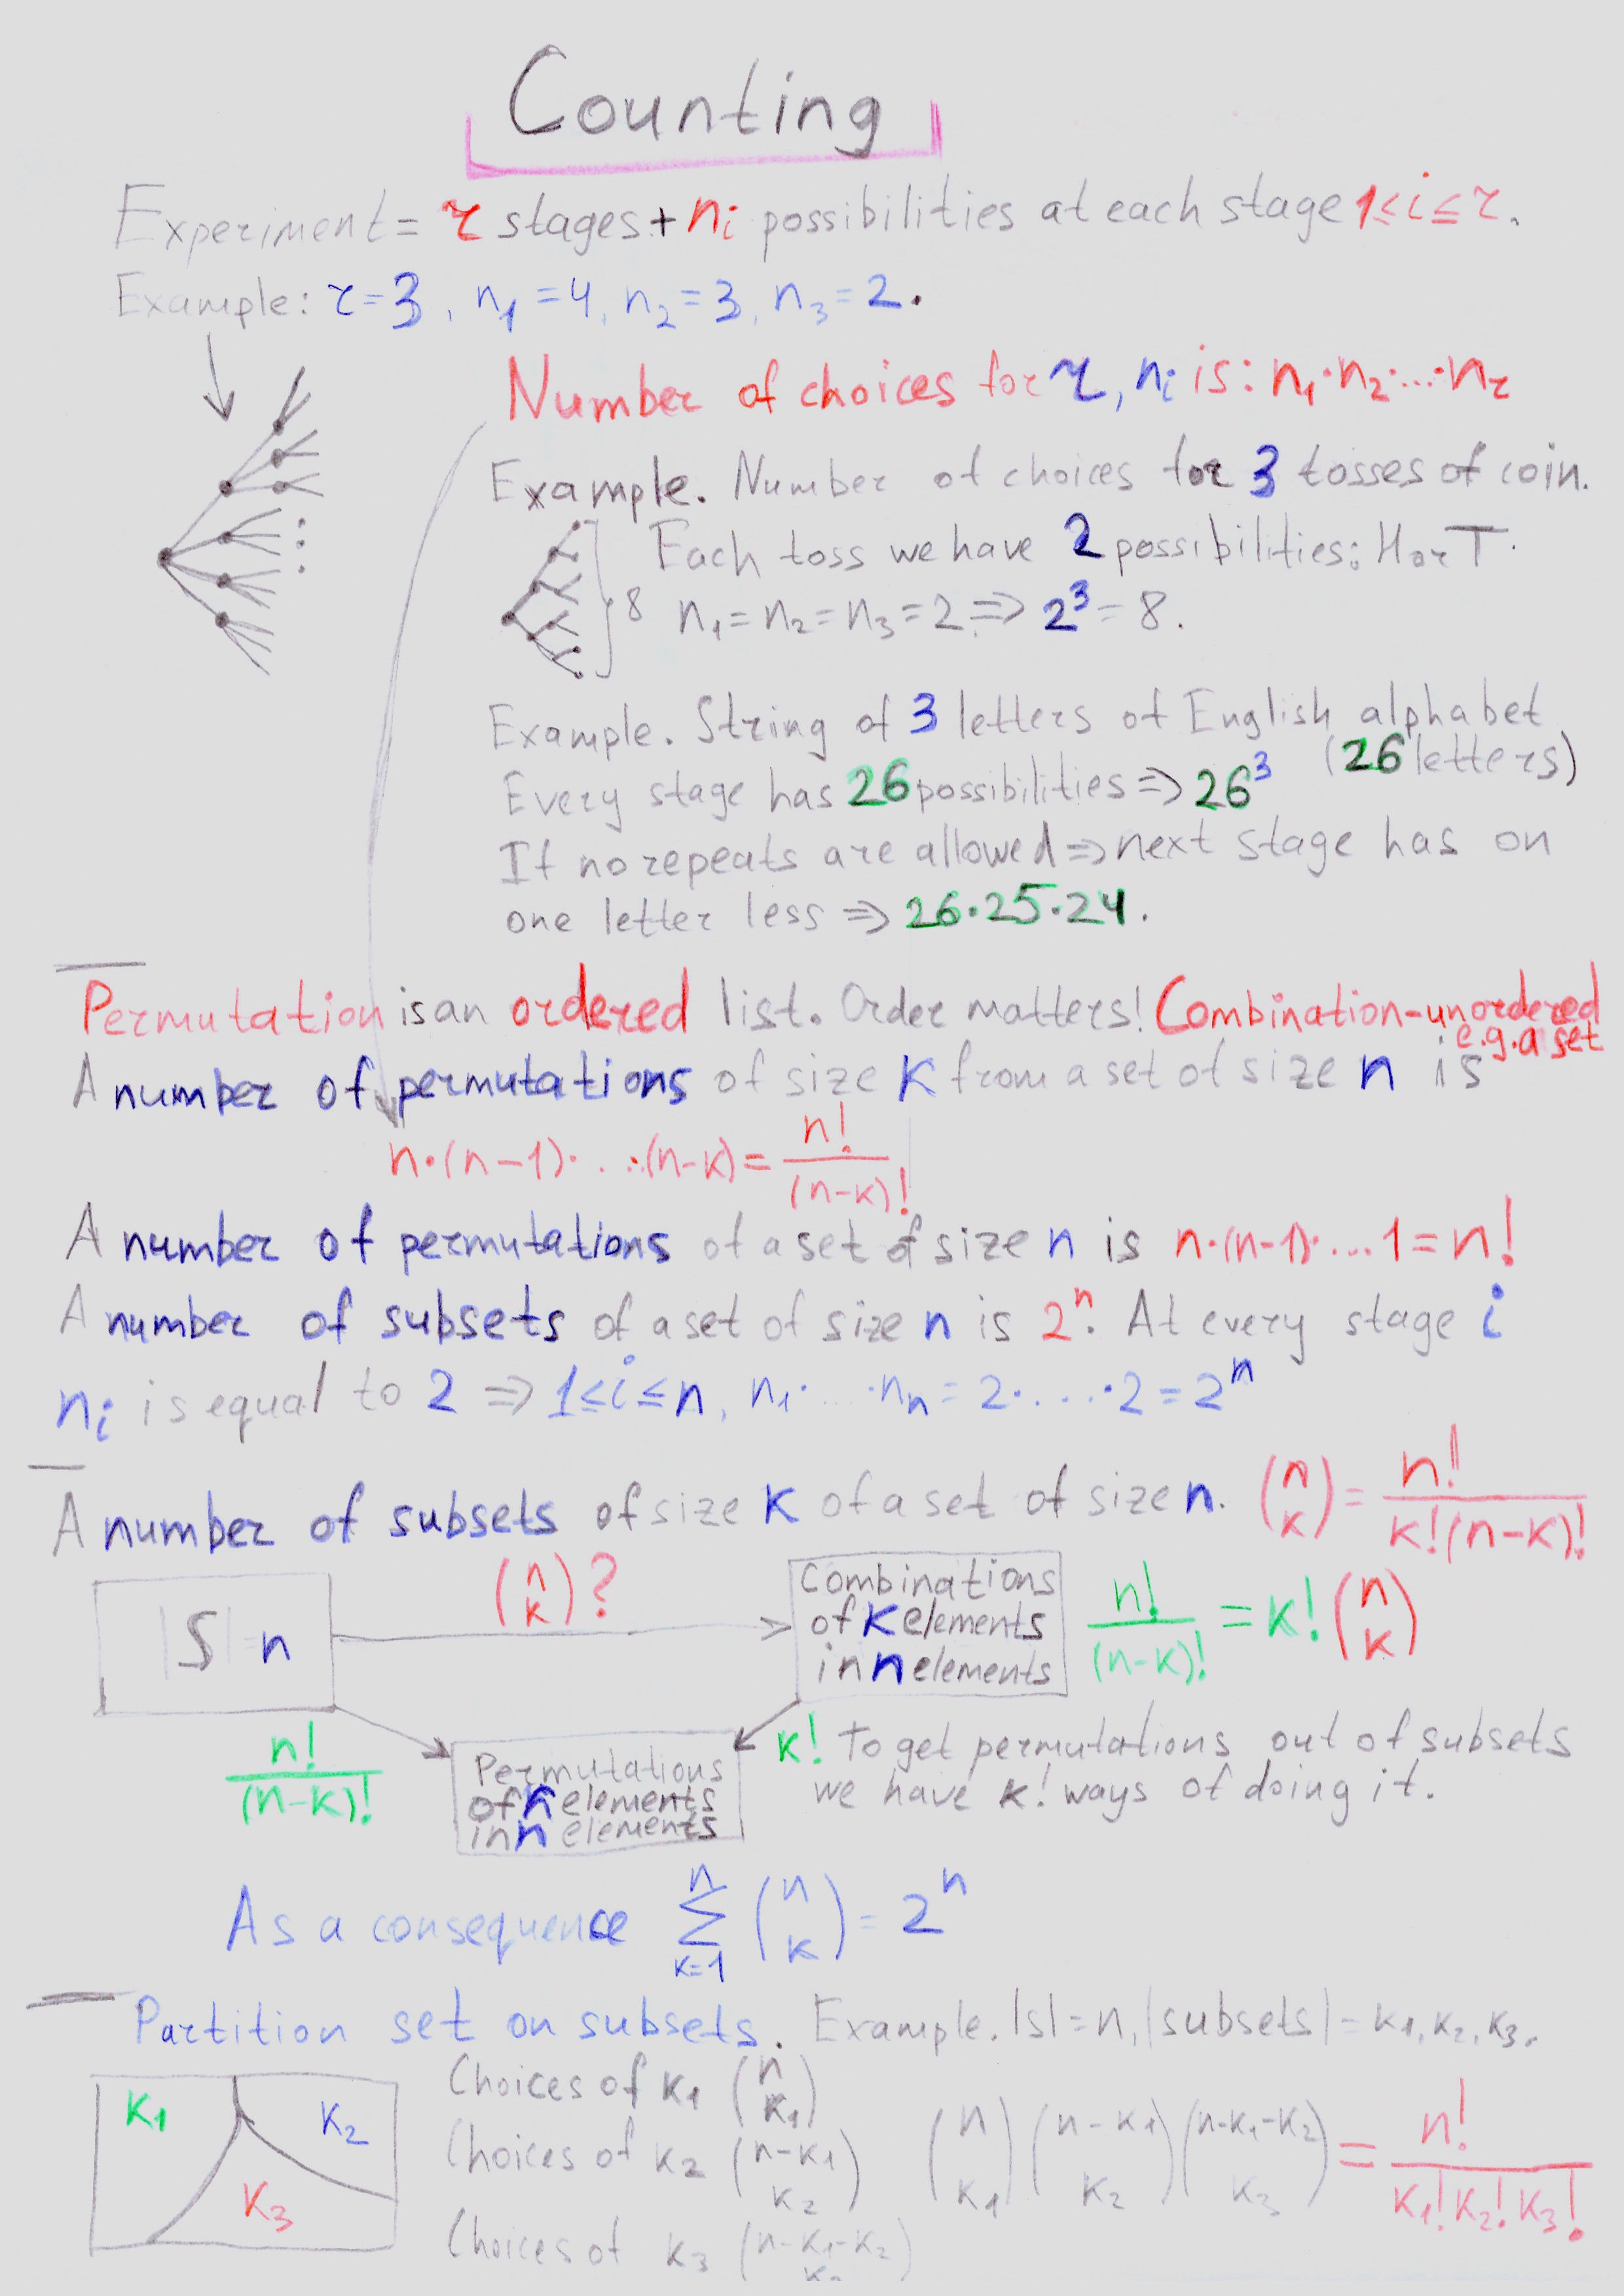 Counting
Experiment = r stages + nᵢ possibilities at each stage 1≤i≤r.
Example: r=3, n₁=4, n₂=3, n₃=2.
Number of choices for r, nᵢ is: n₁·n₂·...·nᵣ
Example. Number of choices for 3 tosses of coin.
Each toss we have 2 possibilities: H or T.
8 n₁=n₂=n₃=2 ⇒ 2³=8.
Example. String of 3 letters of English alphabet
(26 letters)
Every stage has 26 possibilities ⇒ 26³
If no repeats are allowed ⇒ next stage has on
one letter less ⇒ 26·25·24.
Permutation is an ordered list. Order matters! Combination-unordered
e.g. a set
A number of permutations of size k from a set of size n is
n·(n-1)·...·(n-k) = n!/(n-k)!
A number of permutations of a set of size n is n·(n-1)·...1=n!
A number of subsets of a set of size n is 2ⁿ. At every stage i
nᵢ is equal to 2 ⇒ 1≤i≤n, n₁·...·nₙ=2·...·2=2ⁿ
A number of subsets of size k of a set of size n. (n k) = n!/k!(n-k)!
(n k)?
|S| n
Combinations
of k elements
in n elements
n!/(n-k)! = k! (n k)
n!/(n-k)!
Permutations
of elements
in n elements
k! To get permutations out of subsets
we have k! ways of doing it.
As a consequence n Σ k=1 (n k) = 2ⁿ
Partition set on subsets. Example. |S|=n, |subsets|=k₁,k₂,k₃.
k₁ k₂ k₃
Choices of k₁ (n k₁)
Choices of k₂ (n-k₁ k₂)
Choices of k₃ (n-k₁-k₂
(n k₁)(n-k₁ k₂)(n-k₁-k₂ k₃) = n!/k₁!k₂!k₃!